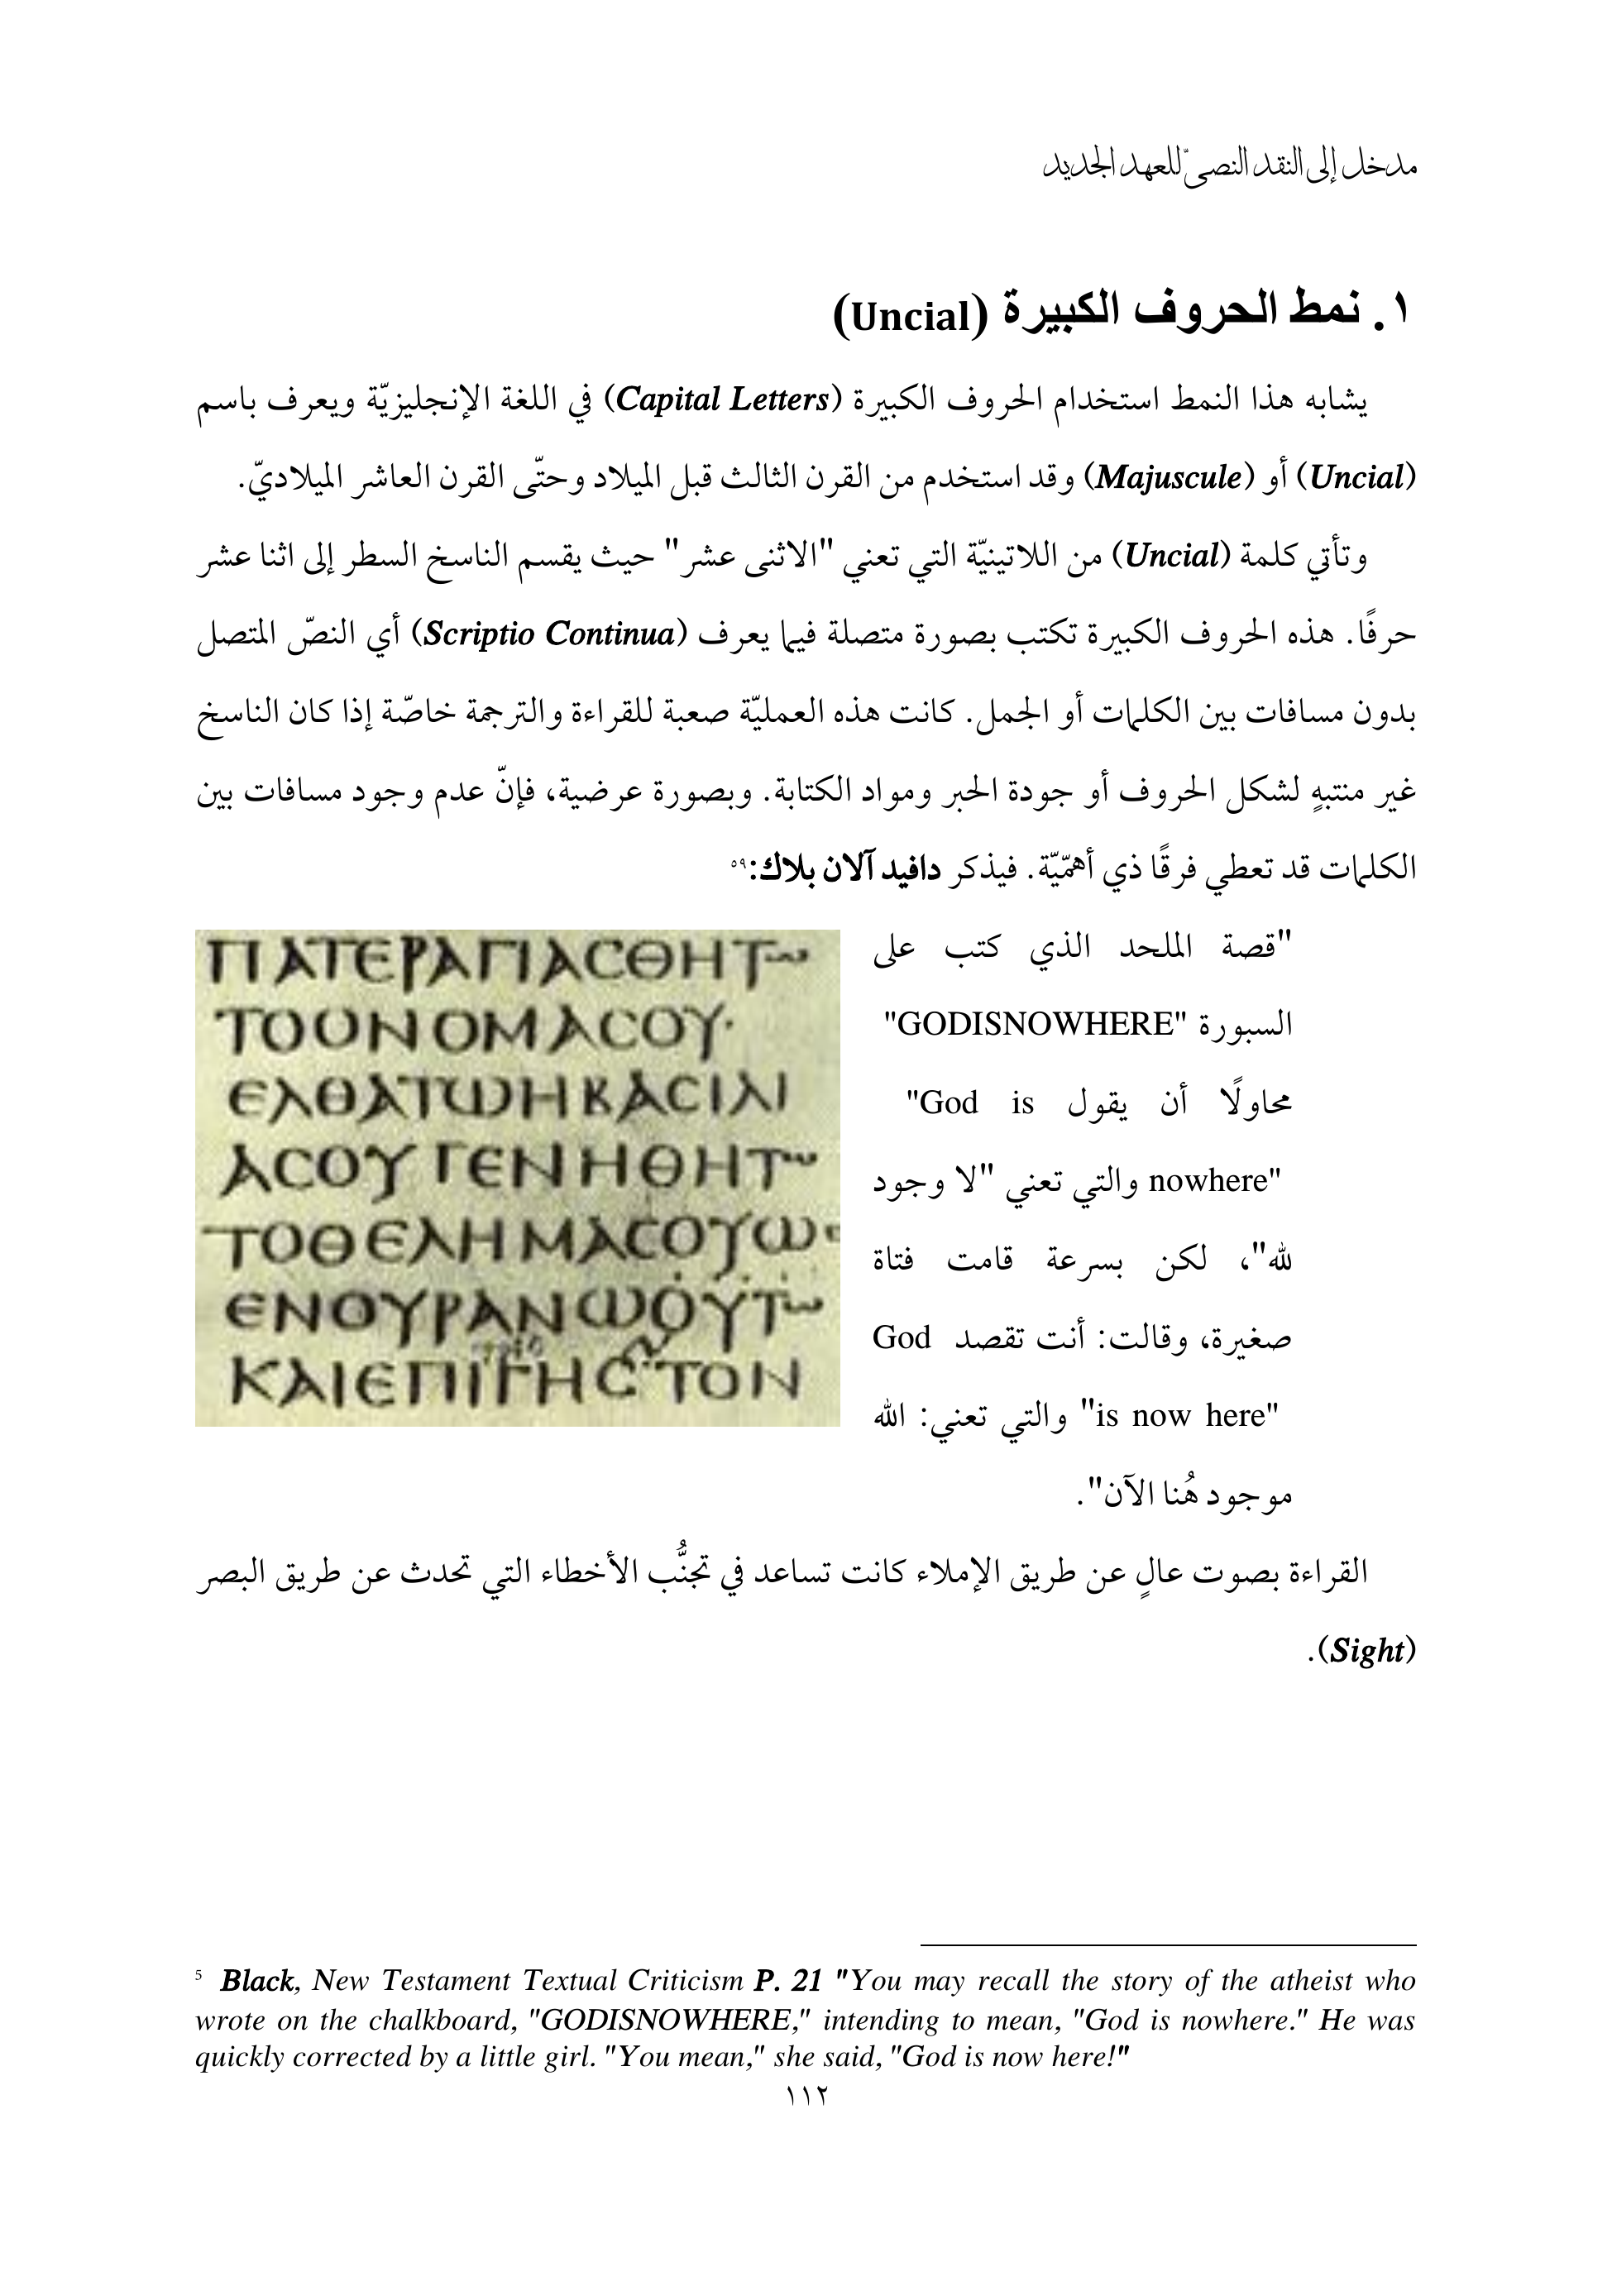 مدخل إلى النقد النصيّ للعهد الجديد
١. نمط الحروف الكبيرة (Uncial)
يشابه هذا النمط استخدام الحروف الكبيرة (Capital Letters) في اللغة الإنجليزيّة ويعرف باسم
(Uncial) أو (Majuscule) وقد استخدم من القرن الثالث قبل الميلاد وحتّى القرن العاشر الميلاديّ.
وتأتي كلمة (Uncial) من اللاتينيّة التي تعني "الاثنى عشر" حيث يقسم الناسخ السطر إلى اثنا عشر
حرفًا. هذه الحروف الكبيرة تكتب بصورة متصلة فيما يعرف (Scriptio Continua) أي النصّ المتصل
بدون مسافات بين الكلمات أو الجمل. كانت هذه العمليّة صعبة للقراءة والترجمة خاصّة إذا كان الناسخ
غير منتبهٍ لشكل الحروف أو جودة الحبر ومواد الكتابة. وبصورة عرضية، فإنّ عدم وجود مسافات بين
الكلمات قد تعطي فرقًا ذي أهمّيّة. فيذكر دافيد آلان بلاك:٥٩
"قصة الملحد الذي كتب على
السبورة "GODISNOWHERE"
محاولًا أن يقول "God is
nowhere" والتي تعني "لا وجود
لله"، لكن بسرعة قامت فتاة
صغيرة، وقالت: أنت تقصد God
is now here" والتي تعني: الله"
موجود هُنا الآن".
ΠΑΤΕΡΑΓΙΑCΘΗΤω
ΤΟΟΝΟΜΑCΟΥ·
ΕΛΘΑΤΩΗΒΑCΙΛΙ
ΑCΟΥΓΕΝΗΘΗΤω
ΤΟΘΕΛΗΜΑCΟΥΩC
ΕΝΟΥΡΑΝΩΟΥΤω
ΚΑΙΕΠΙΓΗCΤΟΝ
القراءة بصوت عالٍ عن طريق الإملاء كانت تساعد في تجنُّب الأخطاء التي تحدث عن طريق البصر
(Sight).
5 Black, New Testament Textual Criticism P. 21 "You may recall the story of the atheist who
wrote on the chalkboard, "GODISNOWHERE," intending to mean, "God is nowhere." He was
quickly corrected by a little girl. "You mean," she said, "God is now here!"
١١٢